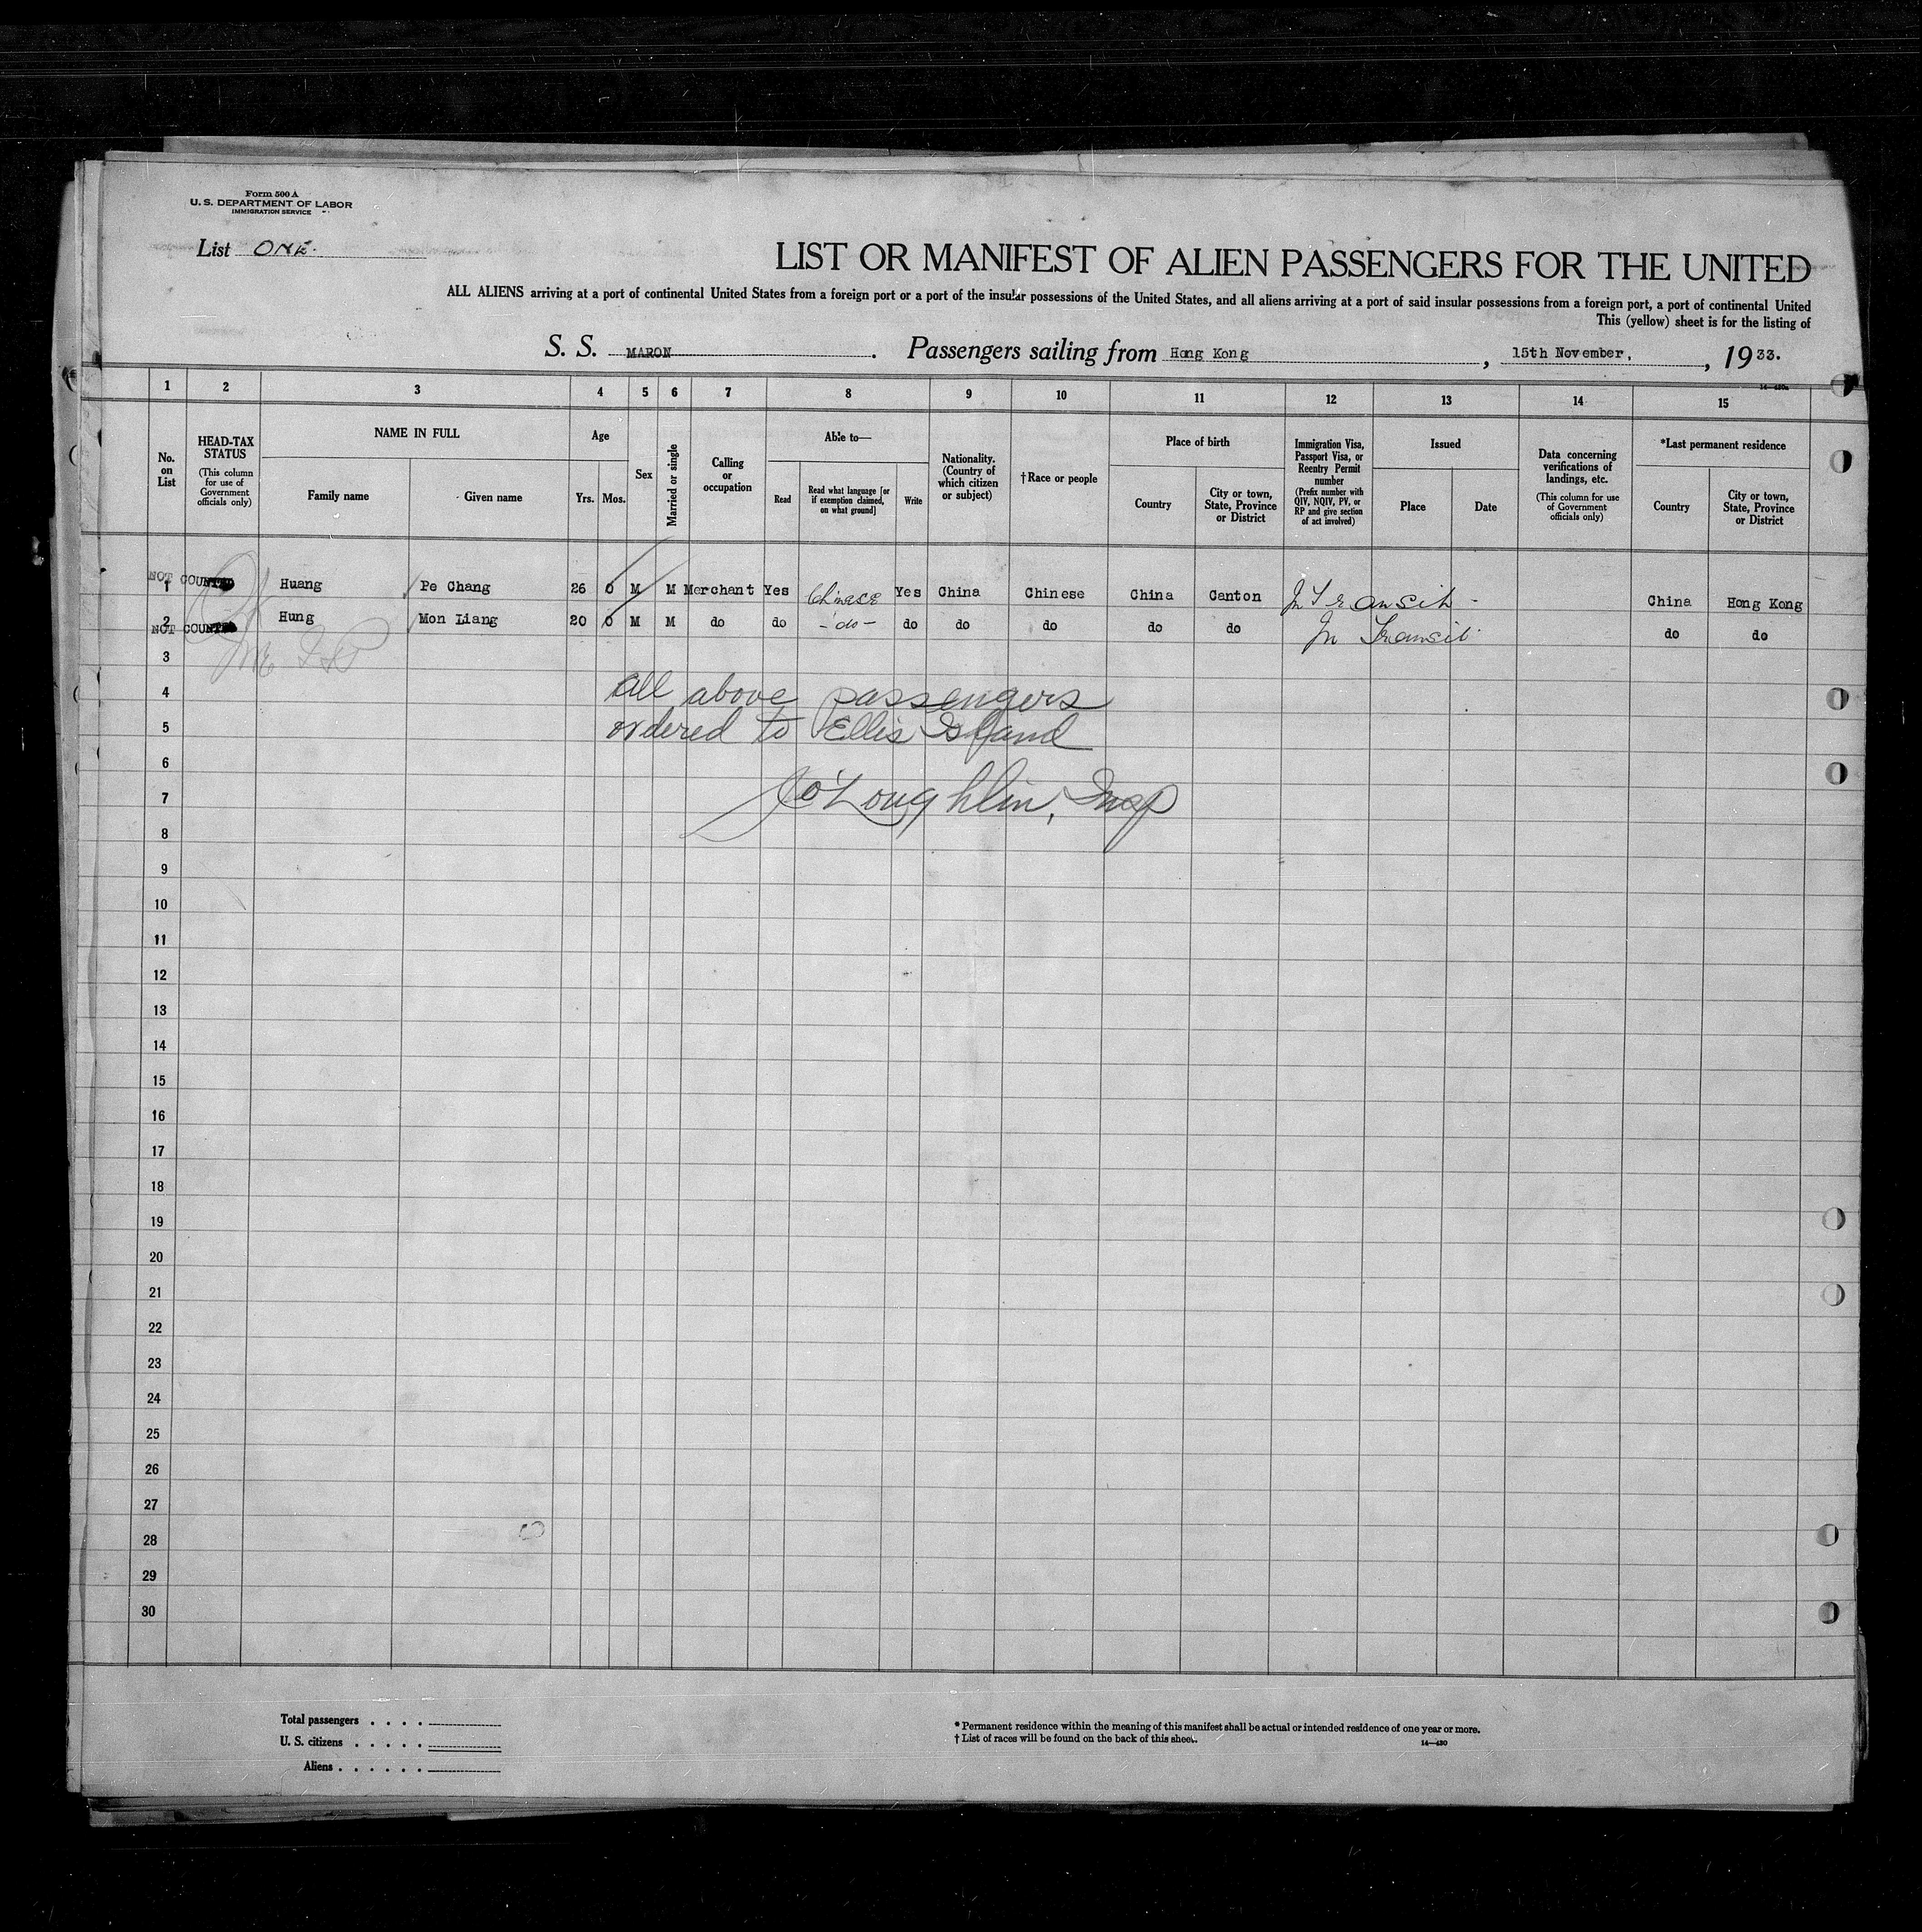 Form 500 A
U. S. DEPARTMENT OF LABOR
IMMIGRATION SERVICE
List ONE.
LIST OR MANIFEST OF ALIEN PASSENGERS FOR THE UNITED
ALL ALIENS arriving at a port of continental United States from a foreign port or a port of the insular possessions of the United States, and all aliens arriving at a port of said insular possessions from a foreign port, a port of continental United
This (yellow) sheet is for the listing of
S. S. MARON. Passengers sailing from Hong Kong, 15th November, , 1933.
14—430a
1 2 3 4 5 6 7 8 9 10 11 12 13 14 15
No. on List
HEAD-TAX STATUS (This column for use of Government officials only)
NAME IN FULL
Family name
Given name
Age
Yrs.
Mos.
Sex
Married or single
Calling or occupation
Able to—
Read
Read what language [or if exemption claimed, on what ground]
Write
Nationality. (Country of which citizen or subject)
†Race or people
Place of birth
Country
City or town, State, Province or District
Immigration Visa, Passport Visa, or Reentry Permit number (Prefix number with QIV, NQIV, PV, or RP and give section of act involved)
Issued
Place
Date
Data concerning verifications of landings, etc. (This column for use of Government officials only)
*Last permanent residence
Country
City or town, State, Province or District
NOT COUNTED
1 Huang Pe Chang 26 0 M M Merchant Yes Chinese Yes China Chinese China Canton In Transit - China Hong Kong
2 Hung Mon Liang 20 0 M M do do - do - do do do do do In Transit. do do
NOT COUNTED
3
4 all above passengers
5 ordered to Ellis Island
6
7 J O'Loughlin, Insp
8
9
10
11
12
13
14
15
16
17
18
19
20
21
22
23
24
25
26
27
28
29
30
Total passengers . . . .
U. S. citizens . . . . .
Aliens . . . . . .
* Permanent residence within the meaning of this manifest shall be actual or intended residence of one year or more.
† List of races will be found on the back of this sheet.
14—430